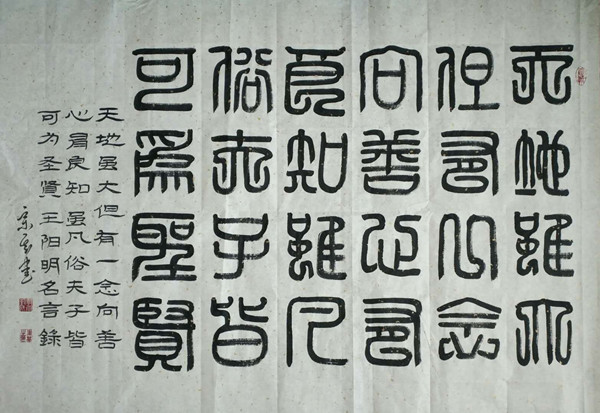 天地雖大
但有一念
向善心有
良知雖凡
俗夫子皆
可為聖賢
天地虽大但有一念向善
心有良知虽凡俗夫子皆
可为圣贤王阳明名言錄